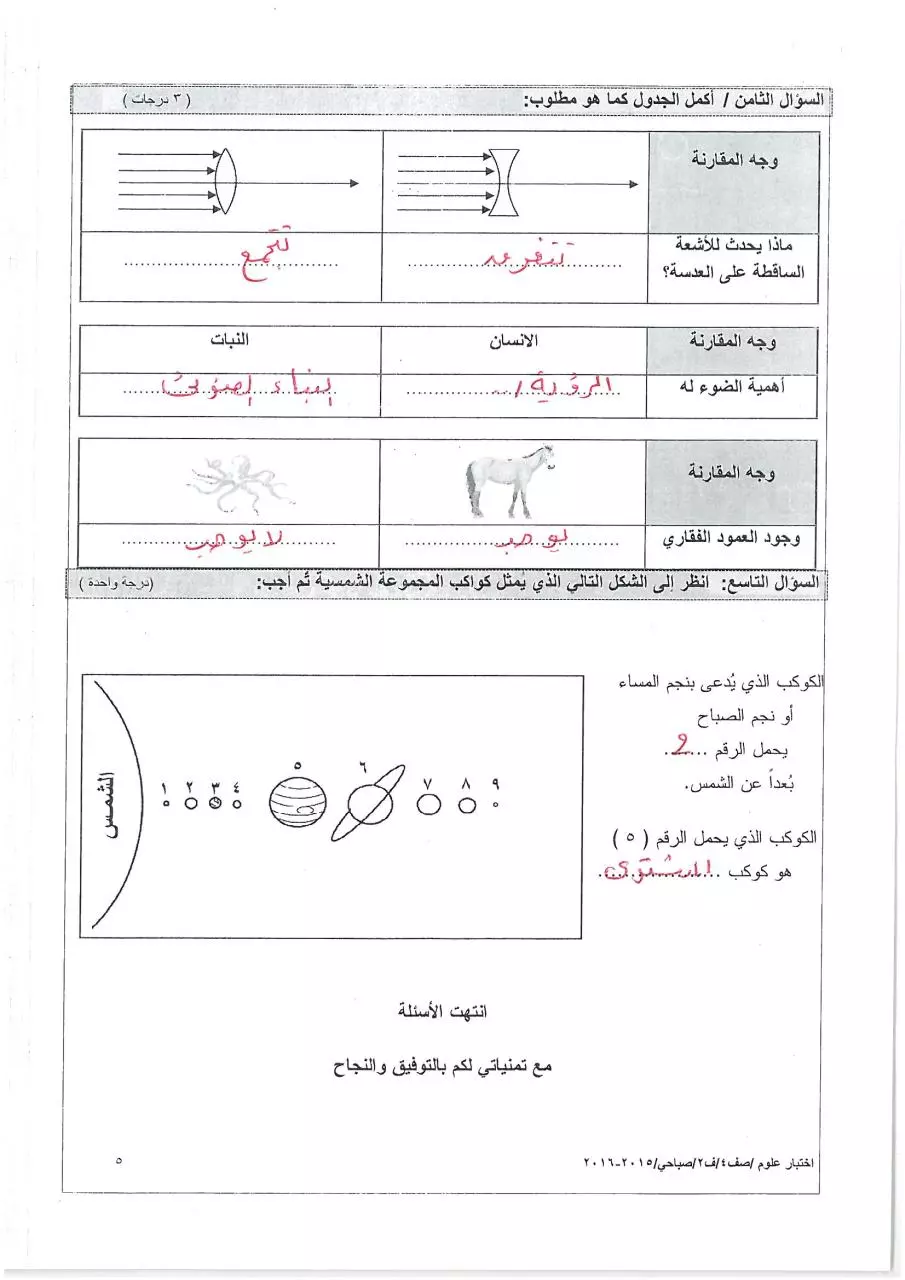 السؤال الثامن / أكمل الجدول كما هو مطلوب: ( ٣ درجات )
وجه المقارنة
ماذا يحدث للأشعة الساقطة على العدسة؟ تتفرق تتجمع
وجه المقارنة الانسان النبات
أهمية الضوء له الرؤية البناء الضوئي
وجه المقارنة
وجود العمود الفقاري يوجد لا يوجد
السؤال التاسع: انظر إلى الشكل التالي الذي يُمثل كواكب المجموعة الشمسية ثم أجب: (درجة واحدة )
الكوكب الذي يُدعى بنجم المساء
أو نجم الصباح
يحمل الرقم ..2...
بُعداً عن الشمس.
الكوكب الذي يحمل الرقم ( ٥ )
هو كوكب المشتري
الشمس
١ ٢ ٣ ٤ ٥ ٦ ٧ ٨ ٩
انتهت الأسئلة
مع تمنياتي لكم بالتوفيق والنجاح
اختبار علوم /صف٤/ف٢/صباحي/٢٠١٥-٢٠١٦
٥